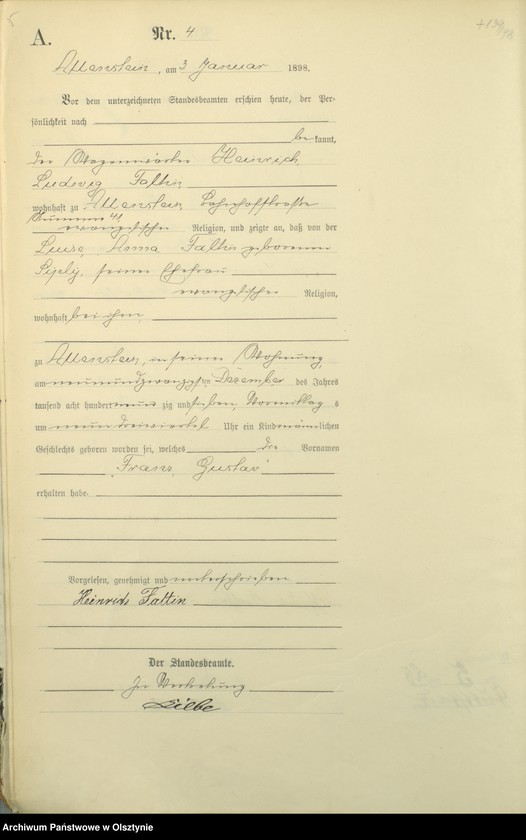 A.
Nr. 4
Allenstein, am 3 Januar 1898.
Vor dem unterzeichneten Standesbeamten erschien heute, der Per-
sönlichkeit nach
bekannt,
der Wagenwärter Heinrich
Ludwig Faltin
wohnhaft zu Allenstein, Bahnhofstrasse
Nummer 41
evangelischer Religion, und zeigte an, daß von der
Luise, Anna Faltin geborenen
seiner Ehefrau
evangelischer Religion,
wohnhaft bei ihm
zu Allenstein, in seiner Wohnung,
am neunundzwanzigsten Dezember des Jahres
tausend acht hundert neunzig und sieben, Vormittags
um neundreiviertel Uhr ein Kind männlichen
Geschlechts geboren worden sei, welches die Vornamen
Franz Gustav
erhalten habe.
Vorgelesen, genehmigt und unterschrieben
Heinrich Faltin
Der Standesbeamte.
In Vertretung
Archiwum Państwowe w Olsztynie